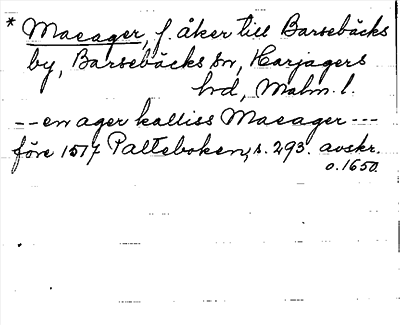 * Maeager, f. åker till Barsebäcks
by, Barsebäcks sn, Harjagers
hrd, Malm. l.
-- en ager kalliss Maeager ---
före 1517 Palteboken, s. 293. avskr.
o. 1650.